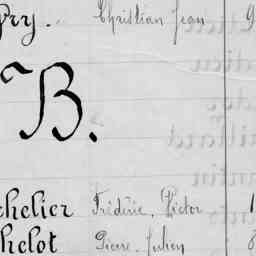 yry. Christian Jean 9
B.
chelier Frédéric, Victor 1
helot Pierre, Julien 8